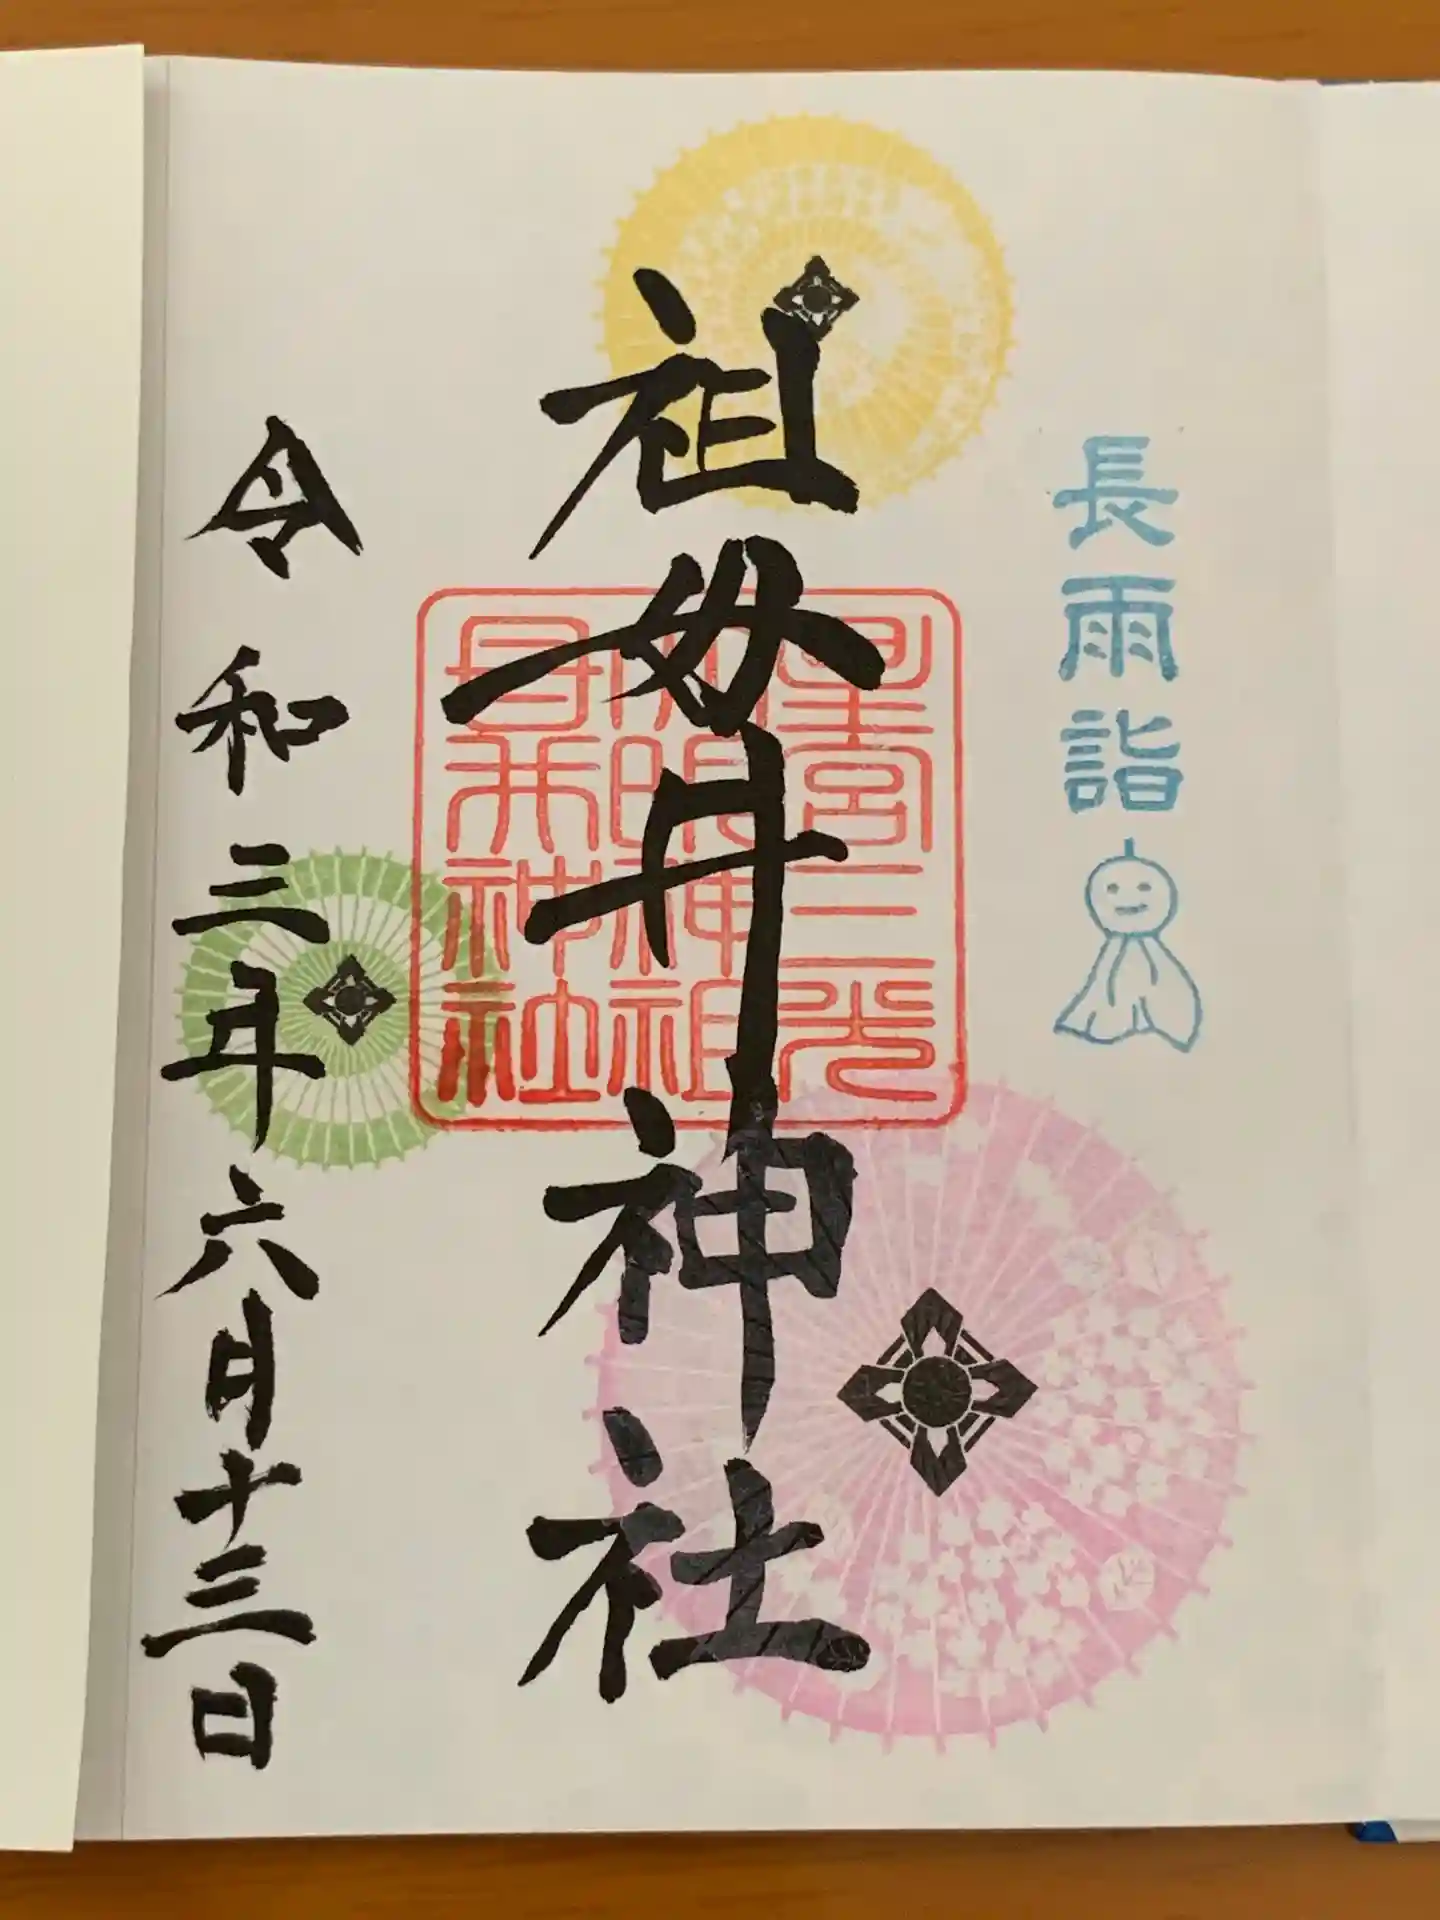 長雨詣
祖母井神社
星宮三光
大明神祖
母井神社
令和三年六月十三日